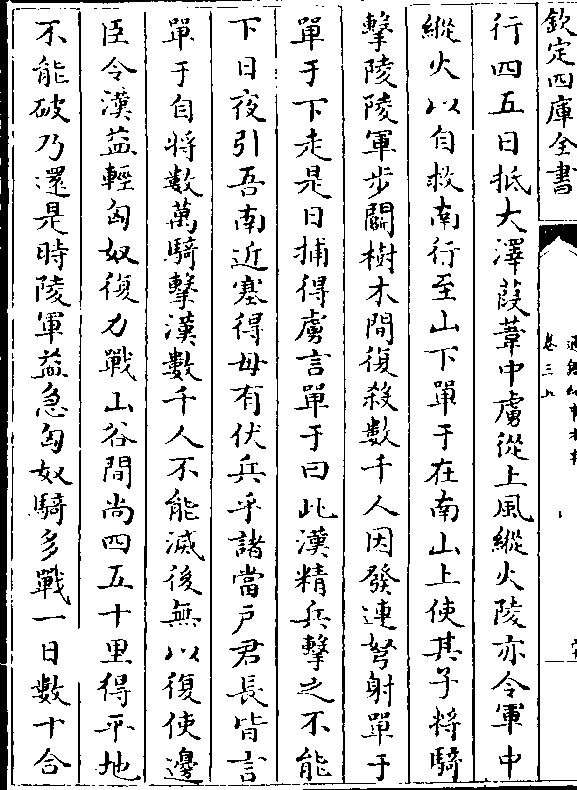 欽定四庫全書
卷三上
行四五日抵大澤葭葦中虜從上風縱火陵亦令軍中
縱火以自救南行至山下單于在南山上使其子將騎
擊陵陵軍步鬭樹木間復殺數千人因發連弩射單于
單于下走是日捕得虜言單于曰此漢精兵擊之不能
下日夜引吾南近塞得毋有伏兵乎諸當户君長皆言
單于自将數萬騎擊漢數千人不能滅後無以復使邊
臣令漢益輕匈奴復力戰山谷間尚四五十里得平地
不能破乃還是時陵軍益急匈奴騎多戰一日數十合